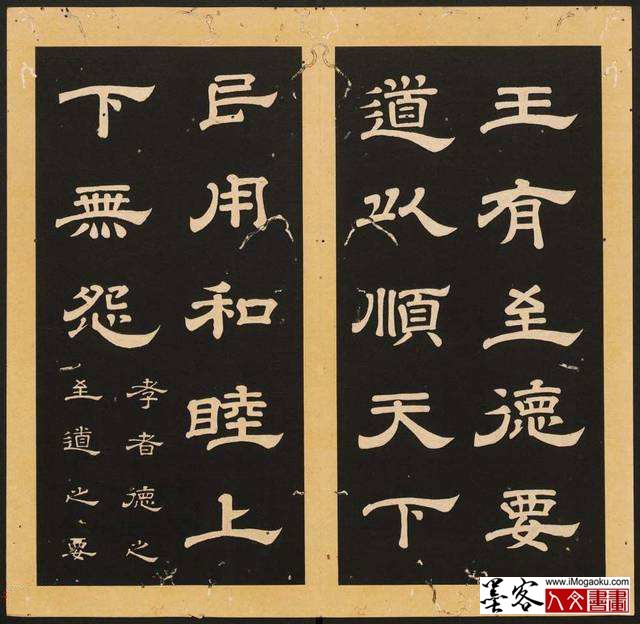 王有至德要
道以順天下
民用和睦上
下無怨
孝者德之
至道之要
墨客
www.iMogaoku.com
人文書畫